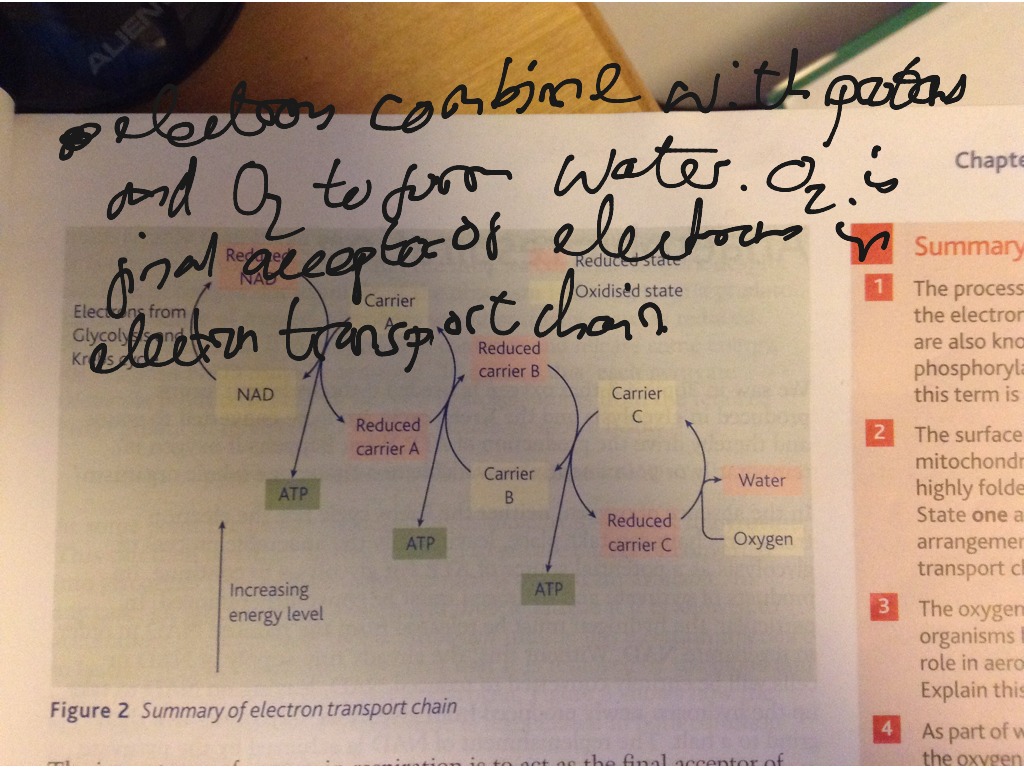 ALIEN
electrons combine with protons
and O2 to form water. O2 is
final acceptor of electrons in
electron transport chain
Chapte
Reduced
NAD
Reduced state
Oxidised state
Electrons from
Glycolysis and
Krebs cycle
Carrier
A
NAD
Reduced
carrier A
Reduced
carrier B
Carrier
B
Carrier
C
Reduced
carrier C
Water
Oxygen
ATP
ATP
ATP
Increasing
energy level
Figure 2 Summary of electron transport chain
Summary
1 The process
the electron
are also kno
phosphoryla
this term is
2 The surface
mitochondr
highly folde
State one a
arrangemen
transport ch
3 The oxygen
organisms
role in aero
Explain this
4 As part of w
the oxygen
in respiration is to act as the final acceptor of